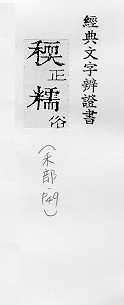 經典文字辨證書
稬正
糯俗
(禾部.P49)